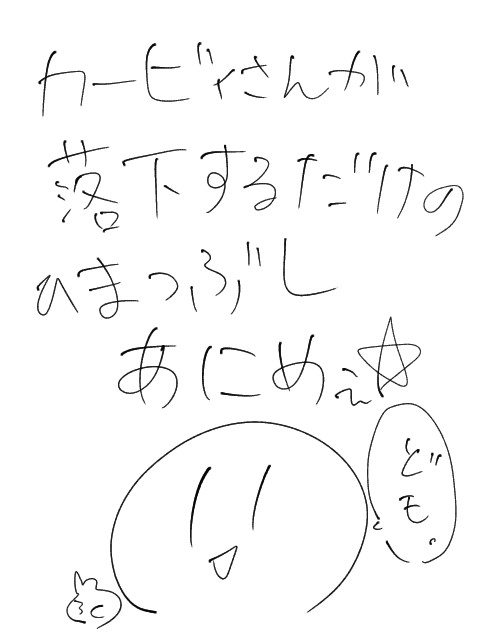 カービィさんが
落下するだけの
ひまつぶし
あにめぇ☆
ども。